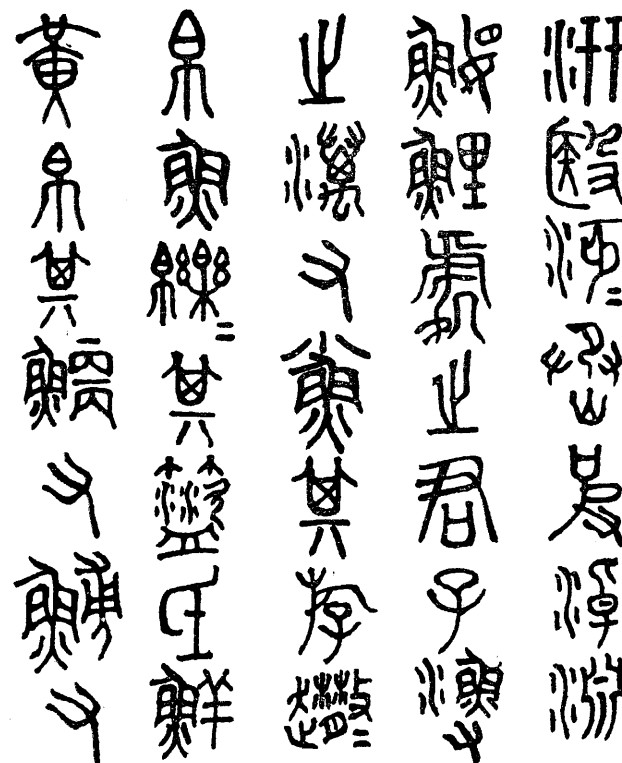 汧殹沔＝丞皮淖淵
鰋鯉處之君子漁
之澫又小魚其斿𧽯＝
帛魚皪＝其盜氐鮮
黃帛其鯾又又